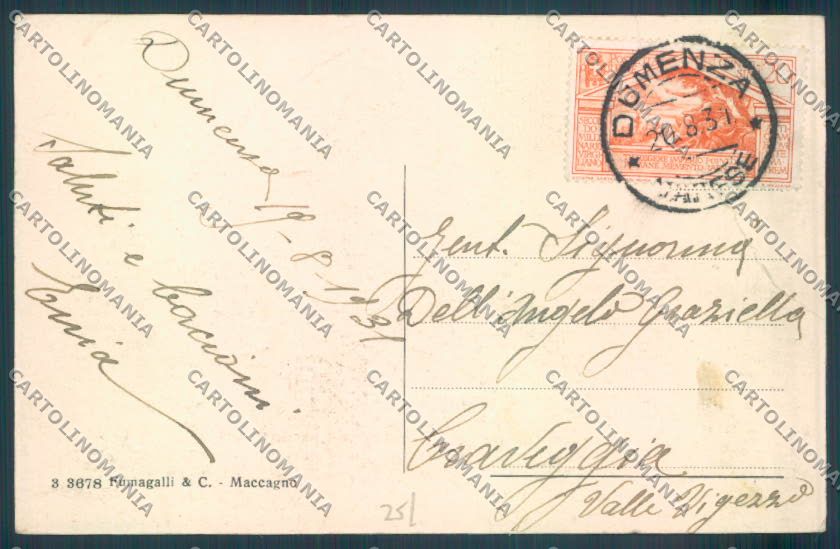 Dumenza 19-8-1931
Saluti e bacioni
Gent. Signorina
Dell'Angelo Graziella
Craveggia
Valle Vigezzo
DUMENZA
20.8.31
VARESE
3 3678 Fumagalli & C. - Maccagno
25/
CARTOLINOMANIA